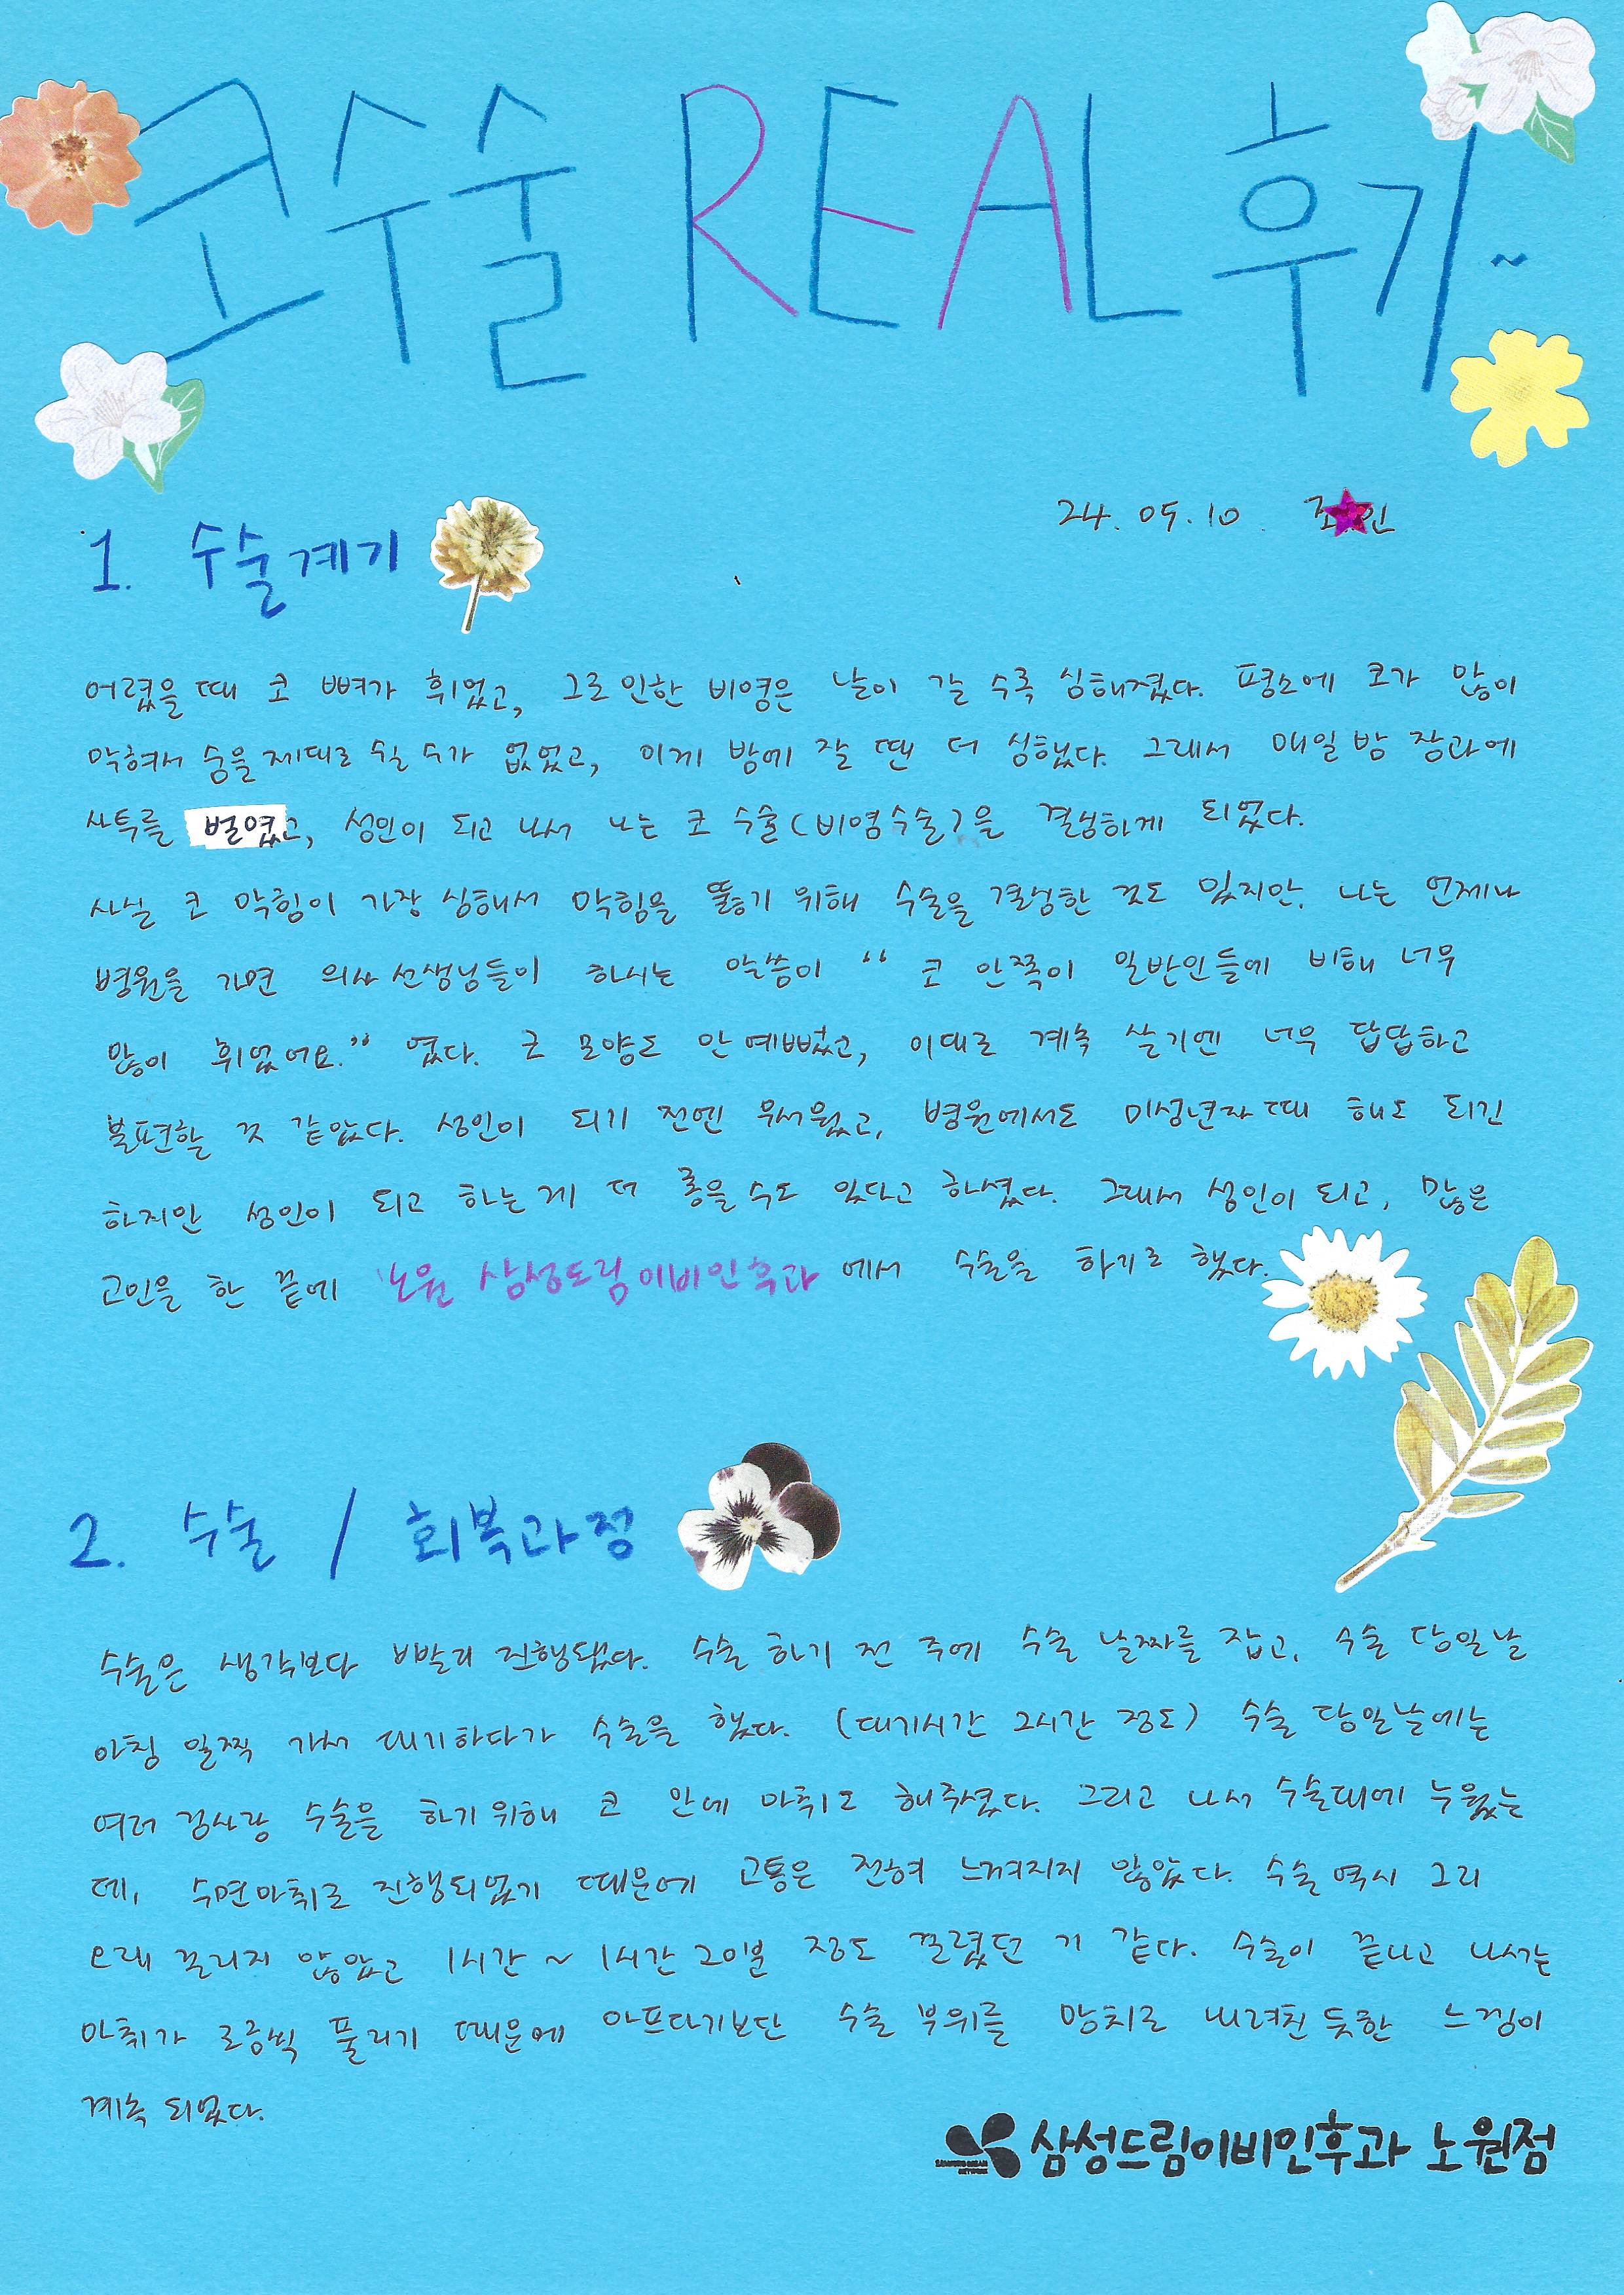 코수술 REAL 후기~
24. 05. 10. 조 인
1. 수술계기
어렸을 때 코 뼈가 휘었고, 그로인한 비염은 날이 갈 수록 심해졌다. 평소에 코가 많이
막혀서 숨을 제대로 쉴 수가 없었고, 이게 밤에 잘 땐 더 심했다. 그래서 매일 밤 잠과에
사투를 벌였고, 성인이 되고 나서 나는 코 수술(비염수술)을 결심하게 되었다.
사실 코 막힘이 가장 심해서 막힘을 뚫기 위해 수술을 결심한 것도 있지만, 나는 언제나
병원을 가면 의사 선생님들이 하시는 말씀이 “ 코 안쪽이 일반인들에 비해 너무
많이 휘었어요.” 였다. 코 모양도 안 예뻤고, 이대로 계속 살기엔 너무 답답하고
불편할 것 같았다. 성인이 되기 전엔 무서웠고, 병원에서도 미성년자 때 해도 되긴
하지만 성인이 되고 하는게 더 좋을 수도 있다고 하셨다. 그래서 성인이 되고, 많은
고민을 한 끝에 노원 삼성드림이비인후과 에서 수술을 하기로 했다.
2. 수술 / 회복과정
수술은 생각보다 빨리 진행됐다. 수술 하기 전 주에 수술 날짜를 잡고, 수술 당일날
아침 일찍 가서 대기하다가 수술을 했다. (대기시간 2시간 정도) 수술 당일날에는
여러 검사랑 수술을 하기위해 코 안에 마취도 해주셨다. 그리고 나서 수술대에 누웠는
데, 수면마취로 진행되었기 때문에 고통은 전혀 느껴지지 않았다. 수술 역시 그리
오래 걸리지 않았고 1시간 ~ 1시간 20분 정도 걸렸던 거 같다. 수술이 끝나고 나서는
마취가 조금씩 풀리기 때문에 아프다기보단 수술 부위를 망치로 내려친 듯한 느낌이
계속 되었다.
삼성드림이비인후과 노원점